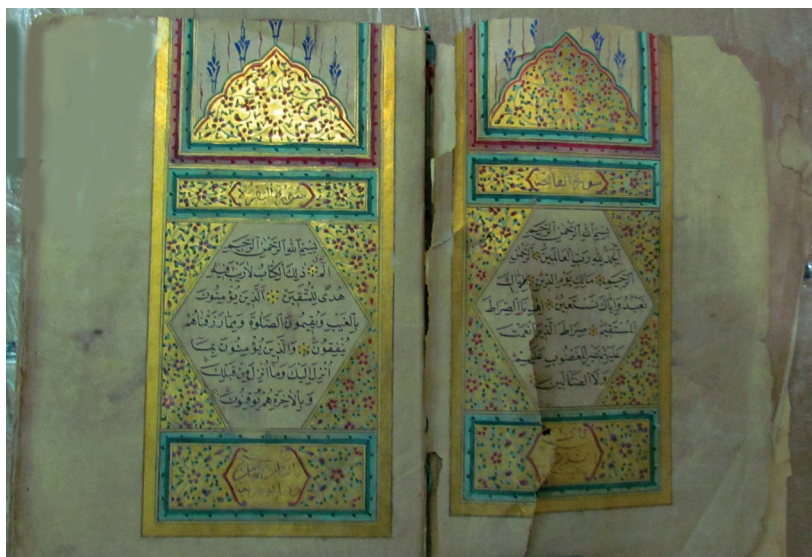 سورة الفاتحة
بسم الله الرحمن الرحيم
الحمد لله رب العالمين الرحمن
الرحيم مالك يوم الدين إياك
نعبد وإياك نستعين اهدنا الصراط
المستقيم صراط الذين أنعمت
عليهم غير المغضوب عليهم
ولا الضالين
سورة البقرة
بسم الله الرحمن الرحيم
الم ذلك الكتاب لا ريب فيه
هدى للمتقين الذين يؤمنون
بالغيب ويقيمون الصلوة ومما رزقناهم
ينفقون والذين يؤمنون بما
أنزل إليك وما أنزل من قبلك
وبالآخرة هم يوقنون